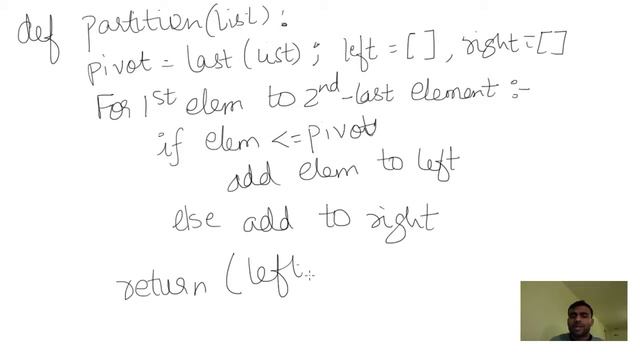 def partition(list):
pivot = last(list); left = [], right = []
For 1st elem to 2nd-last element :-
if elem <= pivot
add elem to left
else add to right
return (left